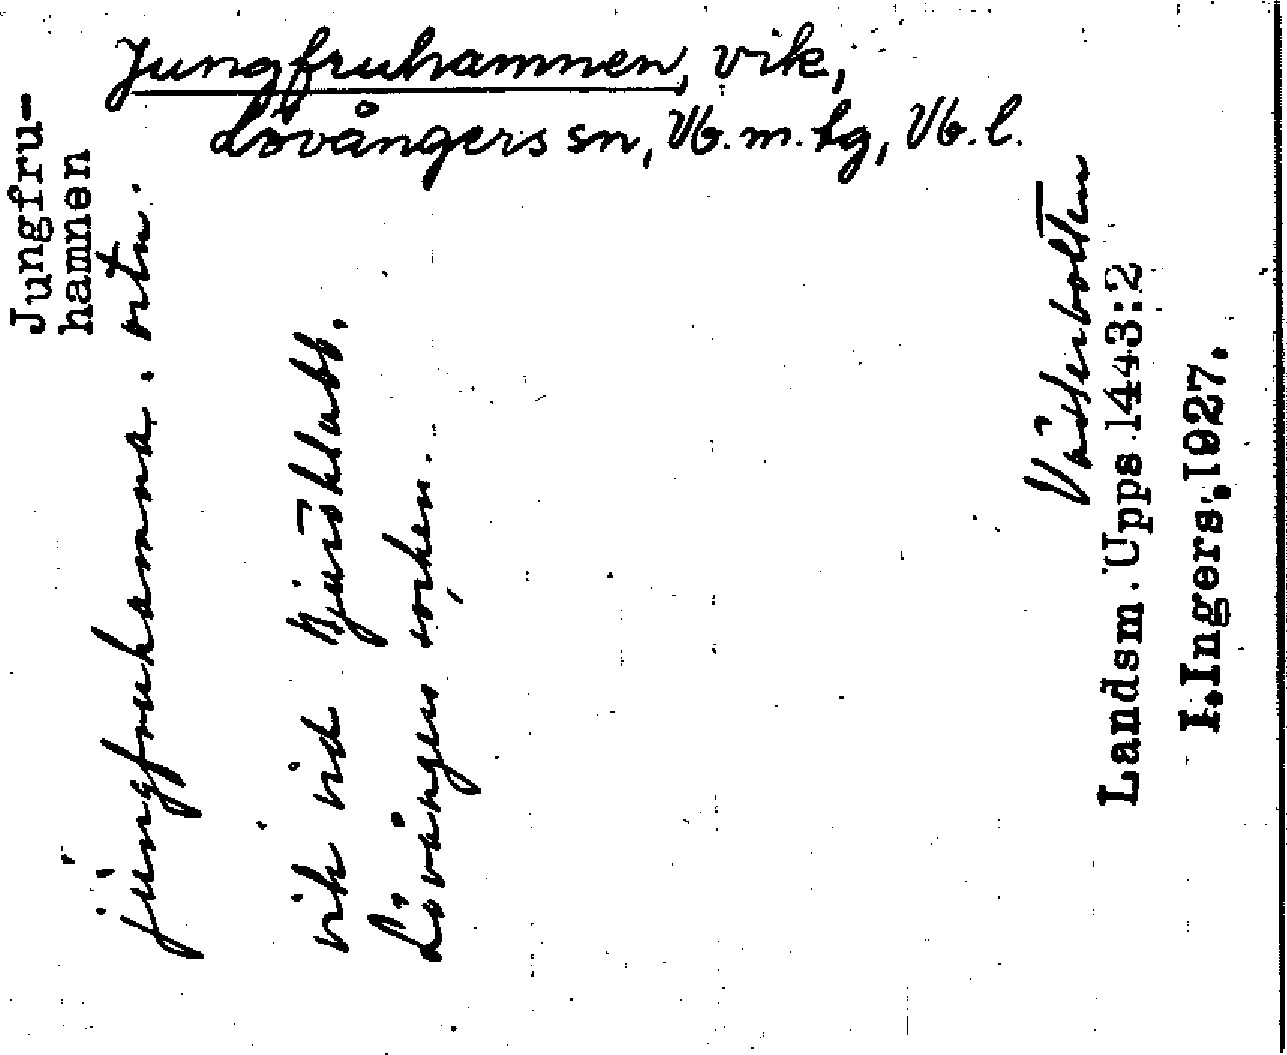 Jungfruhamnen, vik,
Lövångers sn, Vb. m. tg, Vb. l.
Jungfru-
hamnen
jungfruhamna. ortn.
vik vid Bjuröklubb,
Lövångers socken.
Västerbotten
Landsm. Upps 1443:2
I. Ingers, 1927.